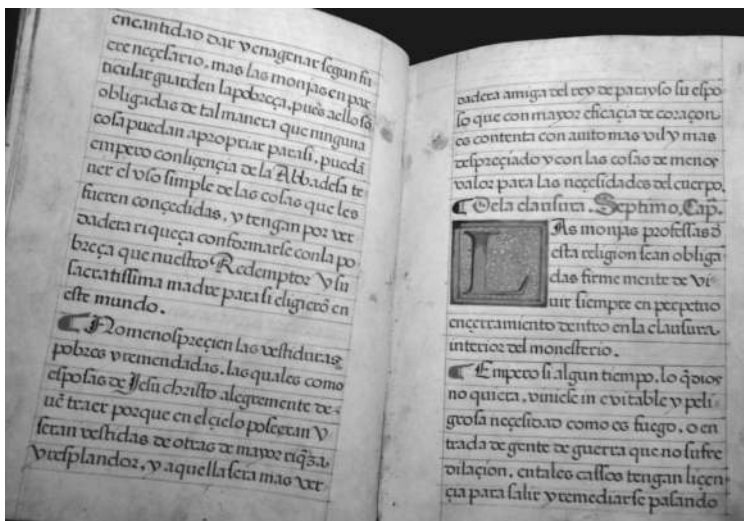 encantidad dar y enagenar segun fu
ere neçessario, mas las monjas en par
ticular guarden la pobreça, pues a ello sō
obligadas de tal manera que ninguna
cosa puedan apropriar para si, puedā
empero con liçençia de la Abbadesa te
ner el vso simple de las cosas que les
fueren conçedidas, y tengan por ver
dadera riqueça conformarse con la po
breça que nuestro Redemptor y su
sacratissima madre para si eligierō en
este mundo.
¶ No menospreçien las vestiduras
pobres y remendadas, las quales como
esposas de Jesu christo alegremente de-
uē traer porque en el çielo posseeran y
seran vestidas de otras de mayor riq̄za,
y resplandor, y aquella sera mas ver
dadera amiga del rey de parayso su espo
so que con mayor eficaçia de coraçon
es contenta con auito mas vil y mas
despreçiado y con las cosas de menor
valor para las neçesidades del cuerpo.
¶ De la clausura. Septimo. Cap̄.
LAs monjas professas d̄
esta religion sean obliga
das firme mente de vi-
uir siempre en perpetuo
ençerramiento dentro en la clausura
interior del monesterio.
¶ Empero si algun tiempo, lo q̄ dios
no quiera, viniese in evitable y peli-
grosa neçesidad como es fuego, o en
trada de gente de guerra que no sufre
dilaçion, en tales cassos tengan liçen-
çia para salir y remediarse pasando